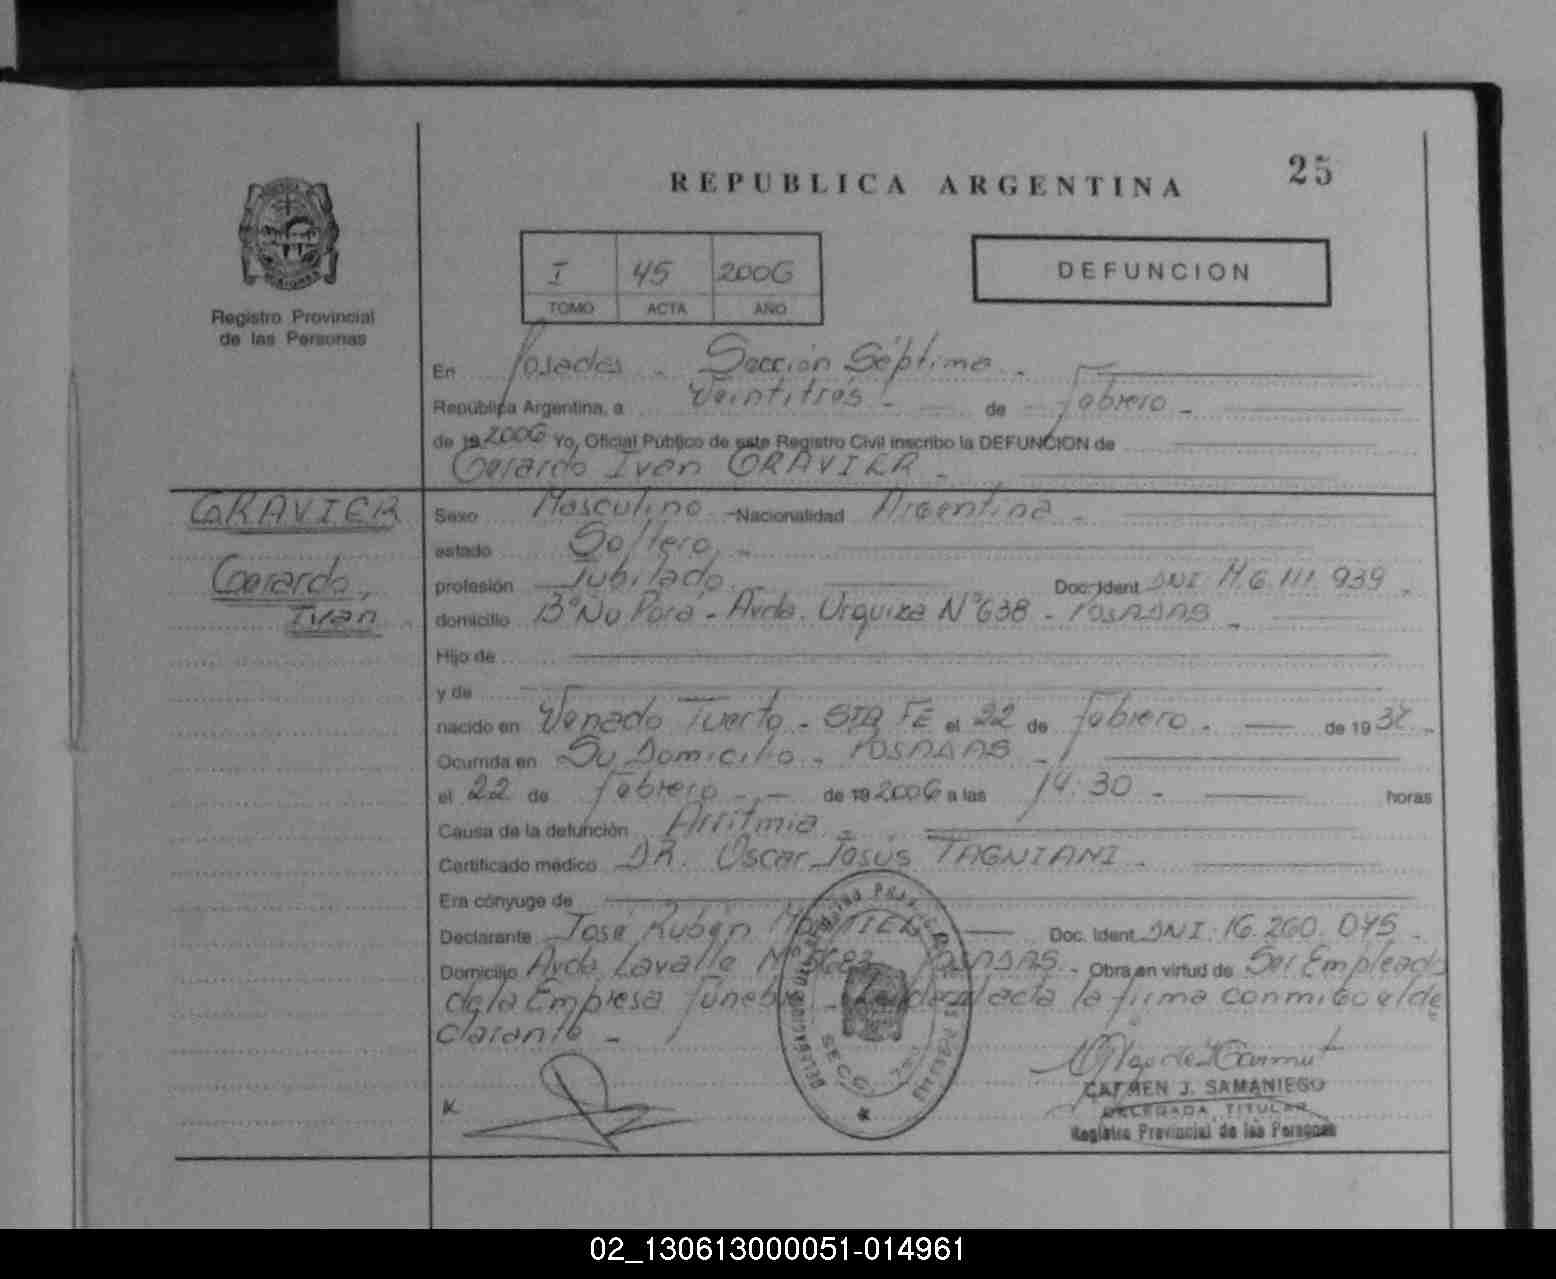 25
REPUBLICA ARGENTINA
I 45 2006
TOMO ACTA AÑO
DEFUNCION
Registro Provincial
de las Personas
En Posadas - Sección Séptima -
República Argentina, a Veintitrés - de Febrero -
de 19 2006 Yo, Oficial Público de este Registro Civil inscribo la DEFUNCION de
Gerardo Ivan GRAVIER -
GRAVIER
Gerardo,
Ivan
Sexo Masculino - Nacionalidad Argentina -
estado Soltero -
profesión Jubilado Doc. Ident. DNI. M. 6.111.939 -
domicilio B° Ñu Porá - Avda. Urquiza N° 638 - POSADAS -
Hijo de
y de
nacido en Venado Tuerto - STA FE el 22 de Febrero - de 19 37 -
Ocurrida en Su Domicilio - POSADAS -
el 22 de Febrero - de 19 2006 a las 14:30 - horas
Causa de la defunción Arritmia -
Certificado médico DR. Oscar Jesús TAGNIANI -
Era cónyuge de
Declarante José Rubén Doc. Ident. DNI. 16.260.045 -
Domicilio Avda Lavalle N° POSADAS - Obra en virtud de Ser Empleado
de la Empresa Fúnebre - acta la firma conmigo el de
clarante -
SECC.
CARMEN J. SAMANIEGO
DELEGADA TITULAR
Registro Provincial de las Personas
02_130613000051-014961